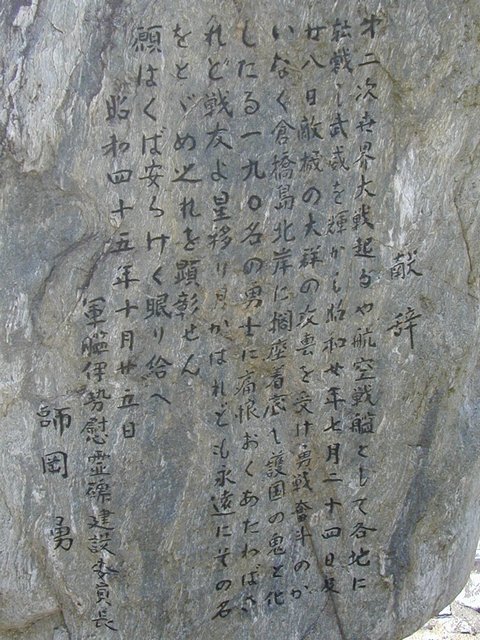 献辞
第二次世界大戦起るや航空戦艦として各地に
転戦し武威を輝かし昭和廿年七月二十四日及
廿八日敵機の大群の攻雲を受け勇戦奮斗のか
いなく倉橋島北岸に擱座着底し護国の鬼と化
したる一九〇名の勇士に痛恨おくあたわばさ
れど戦友よ星移り月かはれども永遠にその名
をとゞめ之れを顕彰せん
願はくば安らけく眠り給へ
昭和四十五年十月廿五日
軍艦伊勢慰霊碑建設委員長
師岡勇